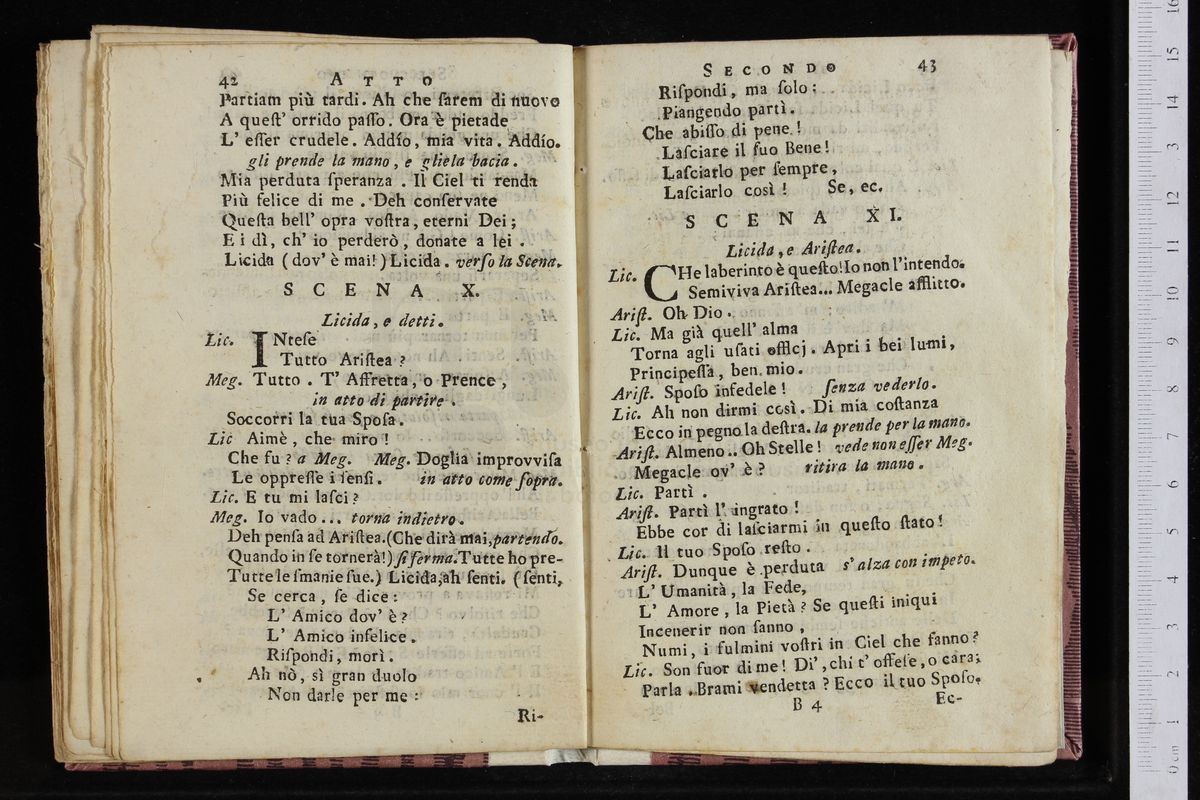 42 ATTO
Partiam più tardi. Ah che ſarem di nuovo
A queſt' orrido paſſo. Ora è pietade
L' eſſer crudele. Addío, mia vita. Addío.
gli prende la mano, e gliela bacia.
Mia perduta ſperanza. Il Ciel ti renda
Più felice di me. Deh conſervate
Queſta bell' opra voſtra, eterni Dei;
E i dì, ch' io perderò, donate a lei.
Licida (dov' è mai!) Licida. verſo la Scena.
SCENA X.
Licida, e detti.
Lic. INteſe
Tutto Ariſtea?
Meg. Tutto. T' Affretta, o Prence,
in atto di partire.
Soccorri la tua Spoſa.
Lic Aimè, che miro!
Che fu? a Meg. Meg. Doglia improvviſa
Le oppreſſe i ſenſi. in atto come ſopra.
Lic. E tu mi laſci?
Meg. Io vado... torna indietro.
Deh penſa ad Ariſtea.(Che dirà mai,partendo.
Quando in ſe tornerà!)ſi ferma.Tutte ho pre-
Tutte le ſmanie ſue.) Licida,ah ſenti. (ſenti,
Se cerca, ſe dice:
L' Amico dov' è?
L' Amico infelice.
Riſpondi, morì.
Ah nò, sì gran duolo
Non darle per me:
Ri-
SECONDO 43
Riſpondi, ma ſolo:
Piangendo partì.
Che abiſſo di pene!
Laſciare il ſuo Bene!
Laſciarlo per ſempre,
Laſciarlo così! Se, ec.
SCENA XI.
Licida, e Ariſtea.
Lic. CHe laberinto è queſto!Io non l'intendo.
Semiviva Ariſtea... Megacle afflitto.
Ariſt. Oh Dio.
Lic. Ma già quell' alma
Torna agli uſati offlcj. Apri i bei lumi,
Principeſſa, ben mio.
Ariſt. Spoſo infedele! ſenza vederlo.
Lic. Ah non dirmi così. Di mia coſtanza
Ecco in pegno la deſtra. la prende per la mano.
Ariſt. Almeno.. Oh Stelle! vede non eſſer Meg.
Megacle ov' è? ritira la mano.
Lic. Partì.
Ariſt. Partì l' ingrato!
Ebbe cor di laſciarmi in queſto ſtato!
Lic. Il tuo Spoſo reſto.
Ariſt. Dunque è perduta s'alza con impeto.
L' Umanità, la Fede,
L' Amore, la Pietà? Se queſti iniqui
Incenerir non ſanno,
Numi, i fulmini voſtri in Ciel che fanno?
Lic. Son fuor di me! Di', chi t' offeſe, o cara;
Parla. Brami vendetta? Ecco il tuo Spoſo.
B 4 Ec-